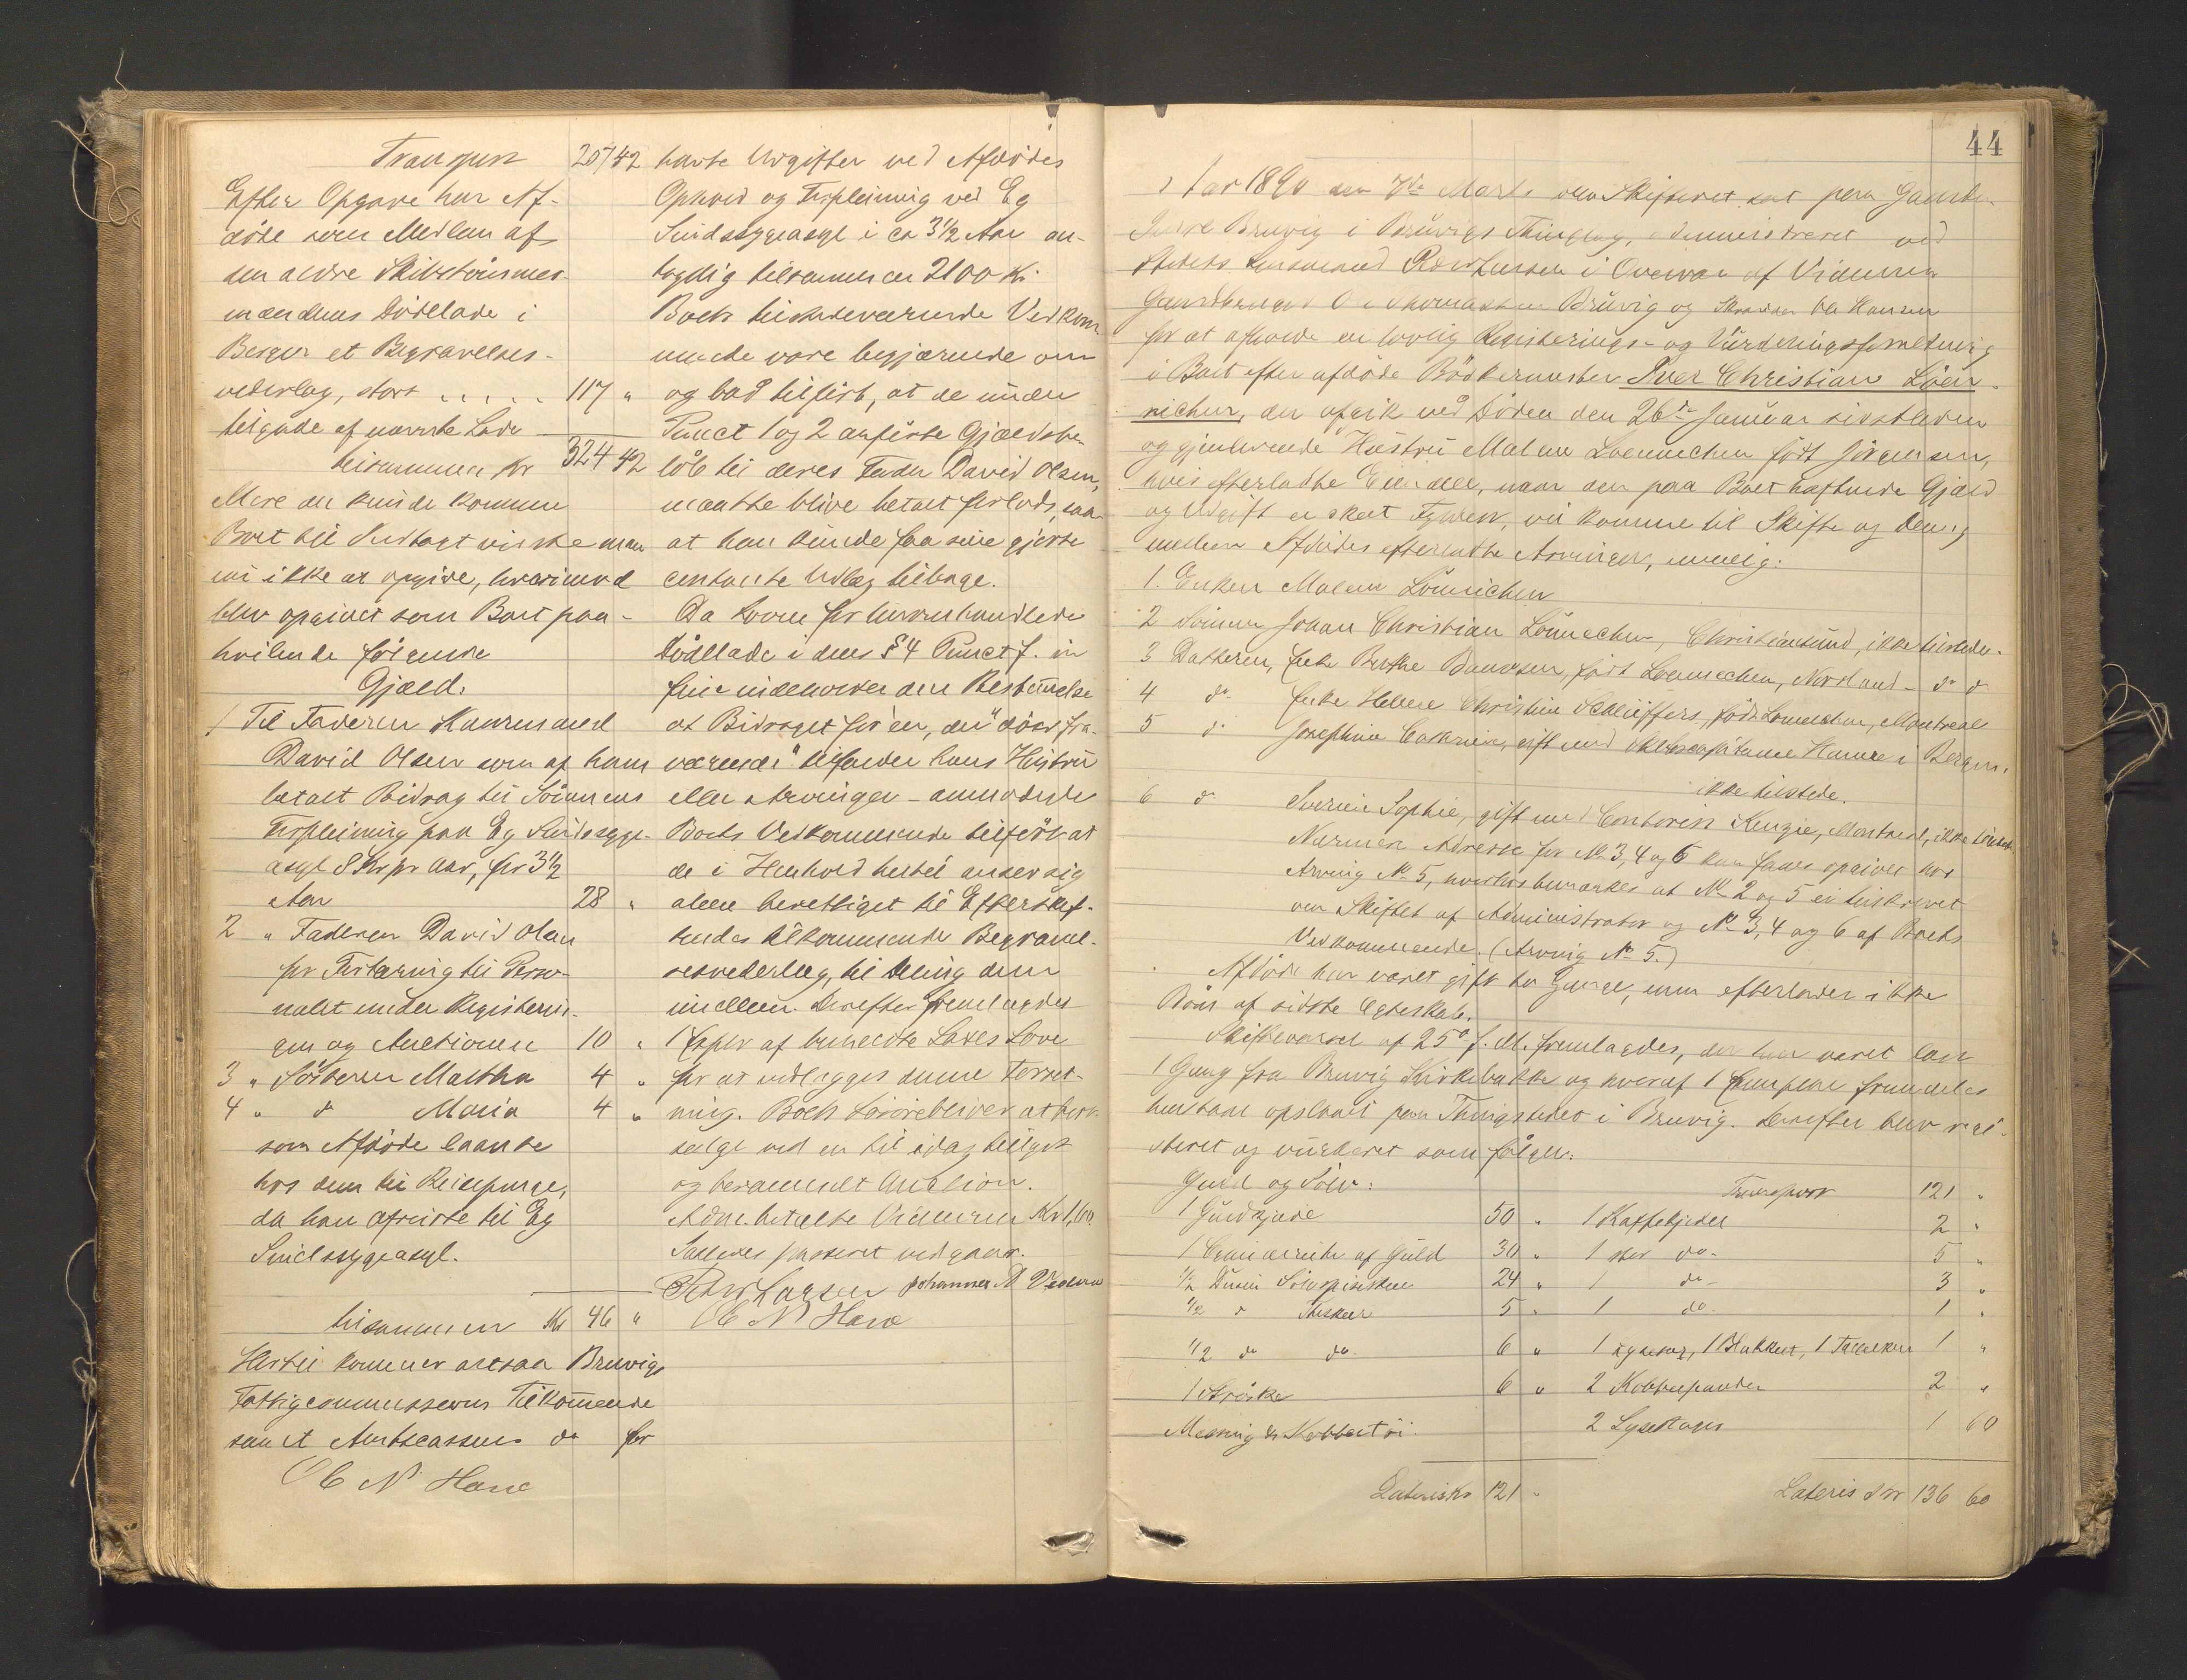 Transport 207 42
Efter Opgave har Af-
døde som Medlem af
den ældre Skibstømmer-
mændenes Dødlade i
Bergen et Begravelses-
vederlag, stort . . . . . 117 "
tilgode af nævnte Lade
tilsammen Kr 324 42
Mere der kunde komme
Boet til Indtægt vidste man
ikke at opgive, hvorimod
blev opgivet som Boet paa-
hvilende følgende
Gjæld:
1 Til Faderen Kaarmand
David Olsen som af ham
betalt Bidrag til Sønnens
Forpleining paa Eg Sindssyge-
asyl 8 Kr pr Aar, for 3½
Aar 28 "
2 " Faderen David Olsen
for Fortæring til Perso-
nalet under Registerin-
gen og Auctionen 10 "
3 " Søsteren Martha 4 "
4 " do Maria 4 "
som Afdøde laante
hos dem til Reisepenge,
da han afreiste til Eg
Sindssygeasyl.
tilsammen Kr 46 "
Hertil kommer ogsaa Bruvigs
Fattigcommissions Tilkommende
samt Amtscassens do for
O N Hare
havte Udgifter ved Afdødes
Ophold og Forpleining ved Eg
Sindssygeasyl i ca 3½ Aar an-
tagelig tilsammen 2100 Kr.
Boets tilstedeværende Vedkom-
mende vare begjærende om
og bad tilført, at de under
Punct 1 og 2 anførte Gjældsbe-
løb til deres Fader David Olsen,
maatte blive betalt forlods, saa
at han kunde faa sine gjorte
contante Udlæg tilbage.
Da Loven for hervomhandlede
Dødlade i dens § 4 Punct f. in
fine indeholder den Bestemmelse
at Bidraget for en, der "døer fra-
værende" tilfalder hans Hustru
eller Arvinger – anmodede
Boets Vedkommende tilført at
de i Henhold hertil anser sig
alene berettiget til Efterskif-
tendes tilkommende Begravel-
sesvederlag, til Deling dem
imellem. Derefter fremlagdes
1 Expl af bemeldte Lades Love
for at vedlægges denne Forret-
ning. Boets Løsøre bliver at bort-
sælge ved en til idag tillyst
og berammet Auction.
Adm. betalte Vidnerne Kr 1,60.
Saaledes passeret vedgaaes.
R Larsen Johannes A
O N Hare
44
Aar 1890 den 7de Marts blev Skifteret sat paa Gaarden
Indre Bruvig i Bruvigs Thinglag, administreret ved
Stedets Lensmand R Larsen i Overvær af Vidnerne
Gaardbruger O Thomassen Bruvig og Skrædder Ole Hansen
for at afholde en lovlig Registerings- og Vurderingsforretning
i Boet efter afdøde Bødkermester Iver Christian Løen-
nichen, der afgik ved Døden den 26de Januar sidstleden
og gjenlevende Hustru Malene Loennechen født Jørgensen,
hvis efterladte Eiendele, naar den paa Boet hæftende Gjæld
og Udgift er skeet Fyldest, vil komme til Skifte og Deling
mellem Afdødes efterladte Arvinger, nemlig:
1. Enken Malene Lönnichen
2 Sønnen Johan Christian Lönnechen, Christiansund, ikke tilstede.
3 Datteren, Enke Berthe Danielsen, født Loennechen, Nordland – do do
4 do Enke Helene Christine Schleiffers, født Lonnechen, Montreal
5 do Josephine Cathrine, gift med Skibscapitaine Hamre i Bergen,
ikke tilstede.
6 do Severine Sophie, gift med Contorist Kenzie, Montreal, ikke tilstede
Nærmere Adresse for No 3, 4 og 6 kan faaes opgivet hos
Arving No 5, hvorhos bemærkes at No 2 og 5 er tilskrevet
om Skiftet af Administrator og No 3, 4 og 6 af Boets
Vedkommende. (Arving No 5.)
Afdøde har været gift to Gange, men efterlader ikke
Børn af sidste Egteskab.
Skiftevarsel af 25de f. M. fremlagdes, der har været læst
1 Gang fra Bruvig Kirkebakke og hvoraf 1 Exemplar fremdeles
henstaar opslaaet paa Thingstedet i Bruvig. Derefter blev regi-
streret og vurderet som følger:
Guld og Sølv:
1 Guldkjæde 50 "
1 af Guld 30 "
½ Dusin Sølvspiseskeer 24 "
½ do Theskeer 5 "
½ do do 6 "
1 Strøske 6 "
Messing & Kobbertøi.
Lateris Kr 121 "
Transport 121 "
1 Kaffekjedel 2 "
1 stor do 5 "
1 do 3 "
1 do 1 "
1 Lysesax, 1 Blækhus, 1 Tallerken 1 "
2 Kobberpander 2 "
2 Lysestager 1 60
Lateris Kr 136 60